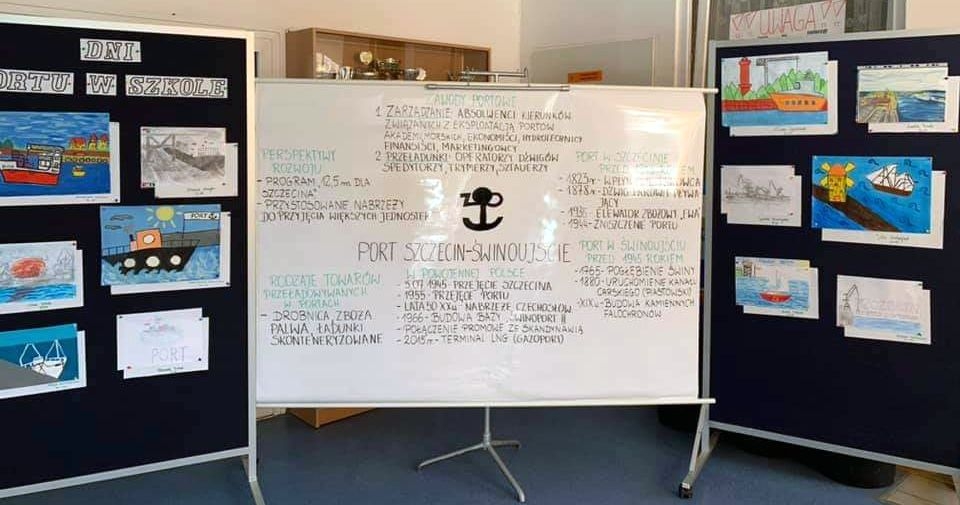 DNI
PORTU W SZKOLE
UWAGA
ZAWODY PORTOWE
1. ZARZĄDZANIE: ABSOLWENCI KIERUNKÓW
ZWIĄZANYCH Z EKSPLOATACJĄ PORTÓW
AKADEMII MORSKICH, EKONOMIŚCI, HYDROTECHNICY
FINANSIŚCI, MARKETINGOWCY
2. PRZEŁADUNKI: OPERATORZY DŹWIGÓW
SPEDYTORZY, TRYMERZY, SZTAUERZY
PERSPEKTYWY
ROZWOJU
- PROGRAM „12,5 m DLA
SZCZECINA"
- PRZYSTOSOWANIE NABRZEŻY
DO PRZYJĘCIA WIĘKSZYCH JEDNOSTEK
PORT W SZCZECINIE
PRZED
- 1823r -
- 1878r - DŹWIG PAROWY PŁYWA
JĄCY
- 1935 - ELEWATOR ZBOŻOWY „EWA"
- 1944 - ZNISZCZENIE PORTU
PORT SZCZECIN-ŚWINOUJŚCIE
RODZAJE TOWARÓW
PRZEŁADOWYWANYCH
W PORTACH
- DROBNICA, ZBOŻA
PALIWA, ŁADUNKI
SKONTENERYZOWANE
W POWOJENNEJ POLSCE
- 5.07.1945 PRZEJĘCIE SZCZECINA
- 1955 - PRZEJĘCIE PORTU
- LATA 50 XXw. NABRZEŻE CZECHOSŁOW.
- 1966 - BUDOWA BAZY „SWINOPORT II
- POŁĄCZENIE PROMOWE ZE SKANDYNAWIĄ
- 2015r - TERMINAL LNG (GAZOPORT)
PORT W ŚWINOUJŚCIU
PRZED 1945 ROKIEM
- POGŁĘBIENIE ŚWINY
- 1880 - URUCHOMIENIE KANAŁU
CARSKIEGO (PIASTOWSKI)
- XIXw - BUDOWA KAMIENNYCH
FALOCHRONÓW
PORT
PORT